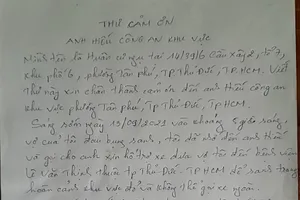 THƯ CẢM ƠN
ANH HIẾU CÔNG AN KHU VỰC
Mình tên là Huân cư ngụ tại 14/29/6 Cầu xây 2, tổ 7,
khu phố 6, phường Tân phú, TP Thủ Đức, TP.HCM. Viết
thư này xin chân thành cảm ơn đến anh Hiếu công an
khu vực phường Tân phú, TP Thủ Đức, TP.HCM.
Sáng sớm ngày 13/09/2021 vào khoảng giờ sáng,
vợ của tôi đau bụng sanh, tôi đã nhờ đến anh Hiếu
và gọi cho anh xin hỗ trợ xe đưa vợ tôi đến bệnh viện
Lê Văn Thịnh thuộc tp Thủ Đức TP.HCM để sanh trong
hoàn cảnh khu vực đó là không thể gọi xe ngoài.